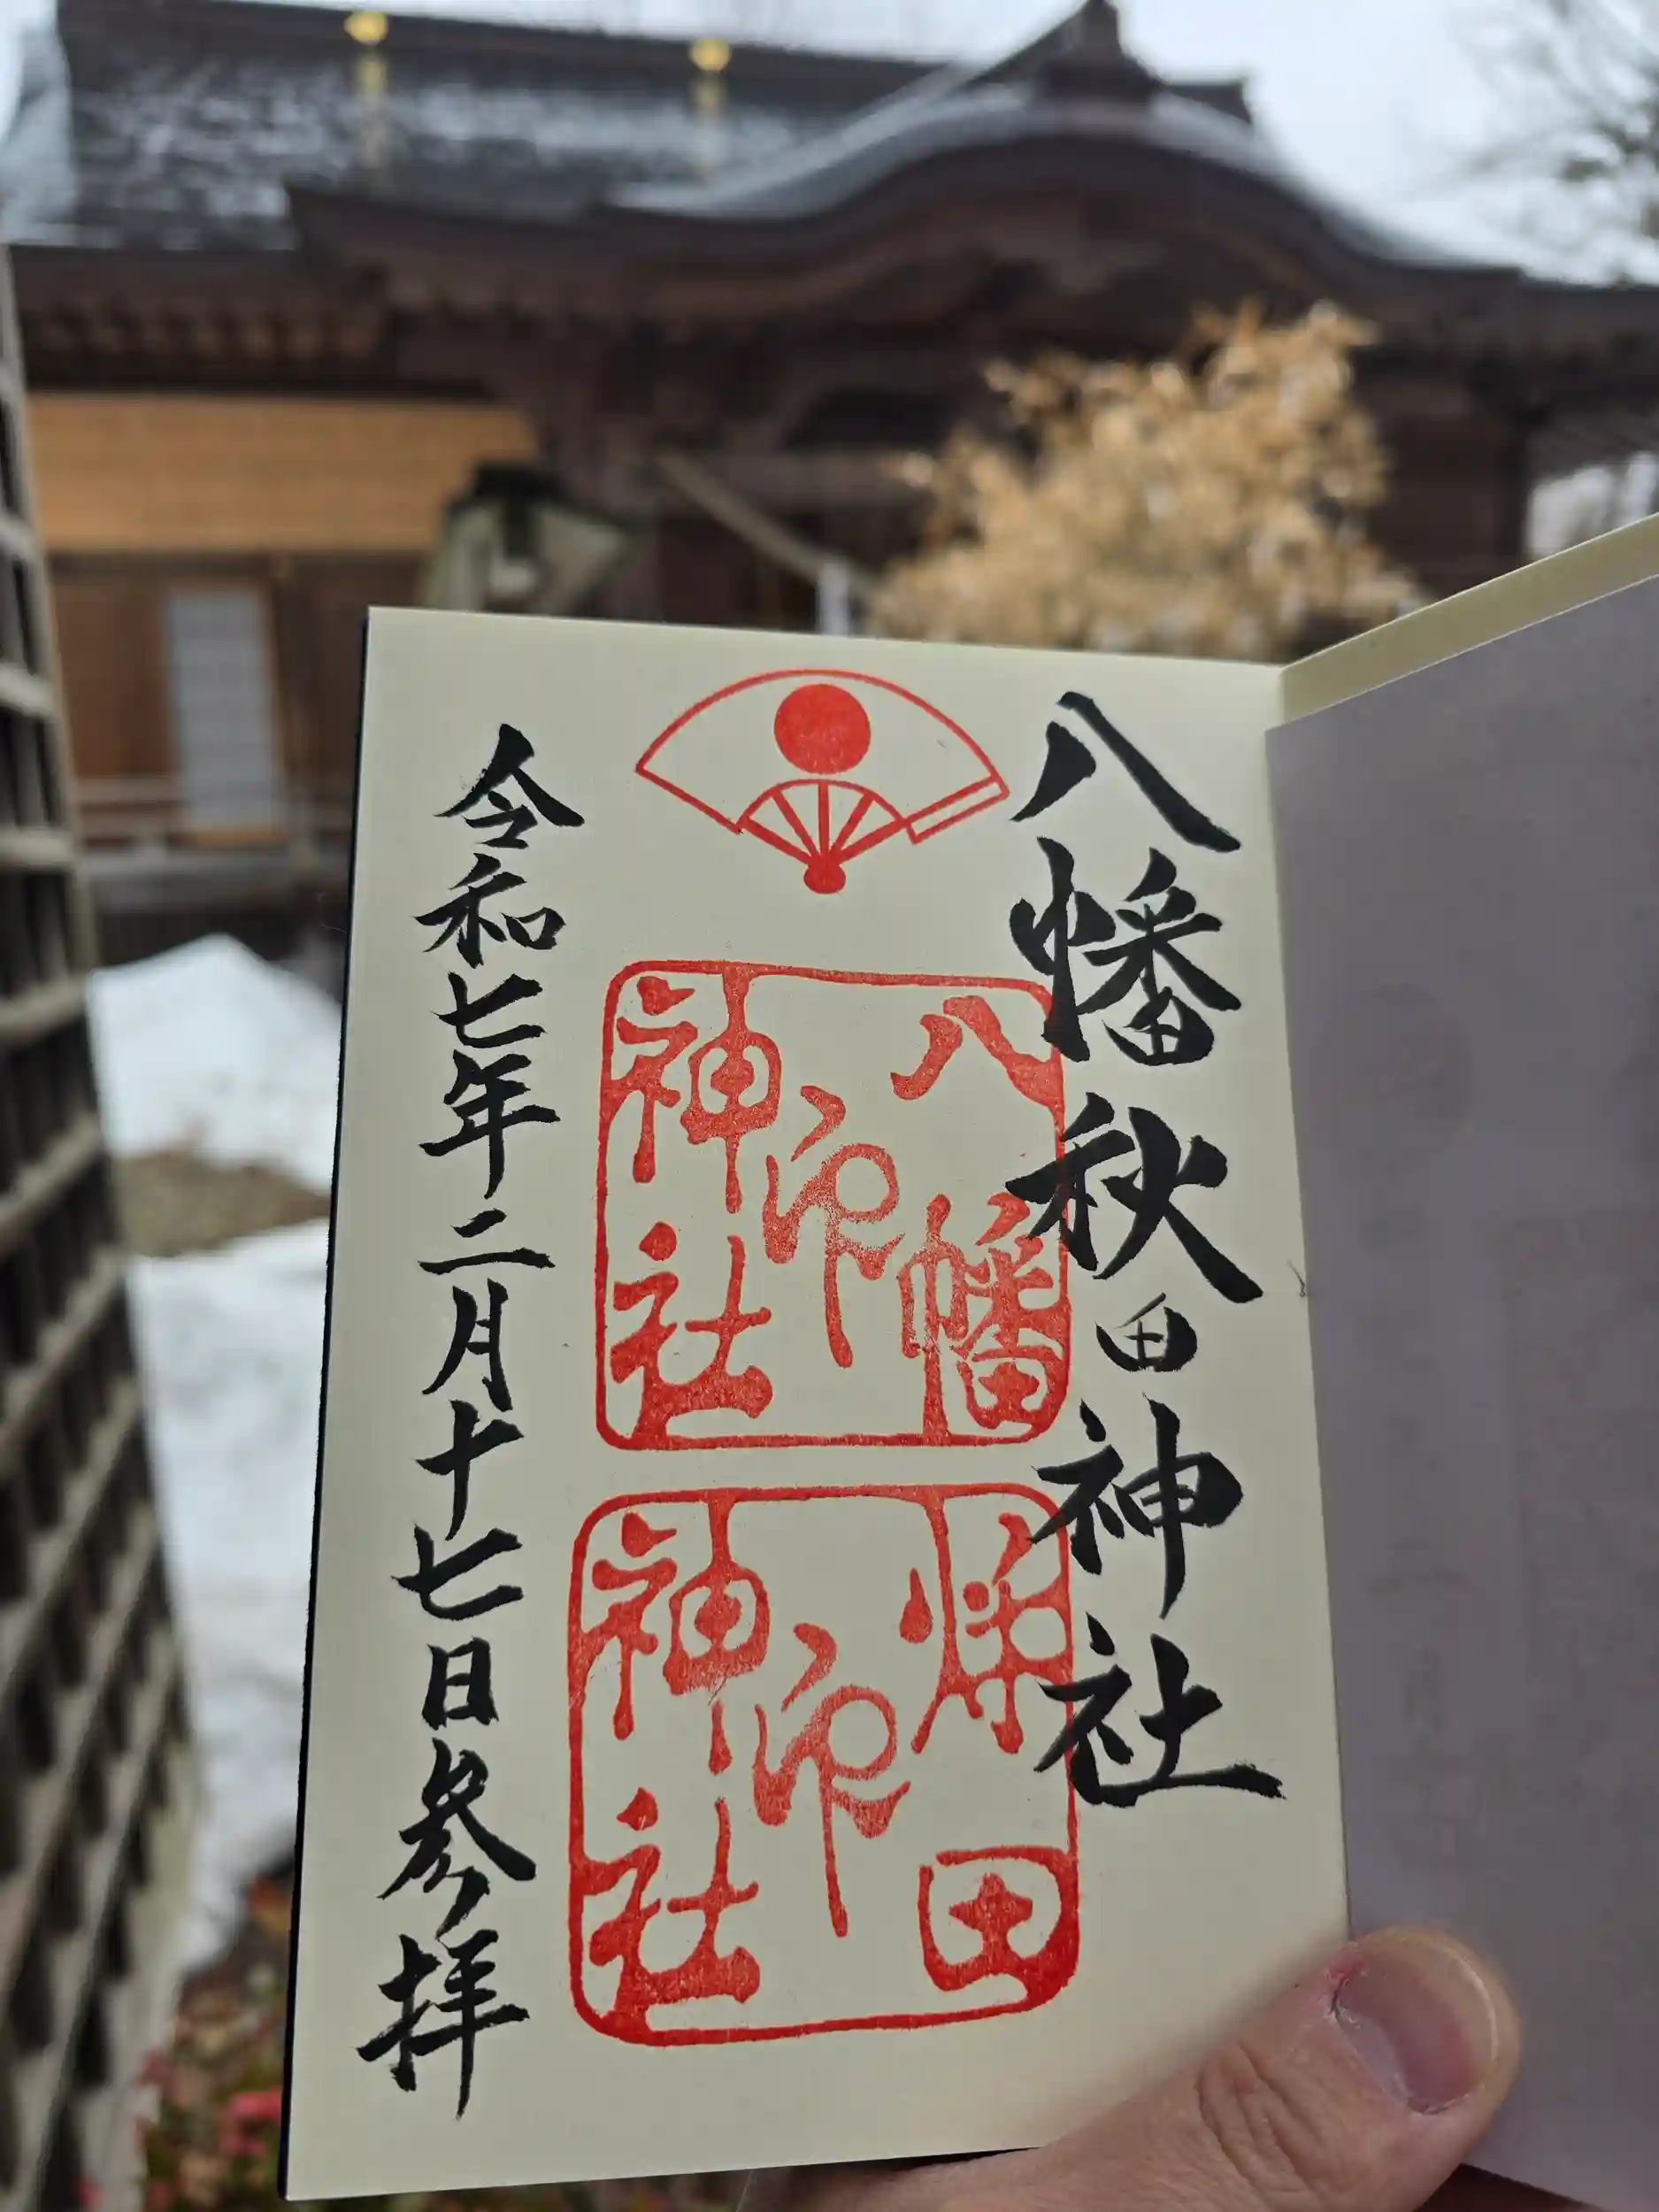 八幡秋田神社
八幡
神社
秌田
神社
令和七年二月十七日参拝